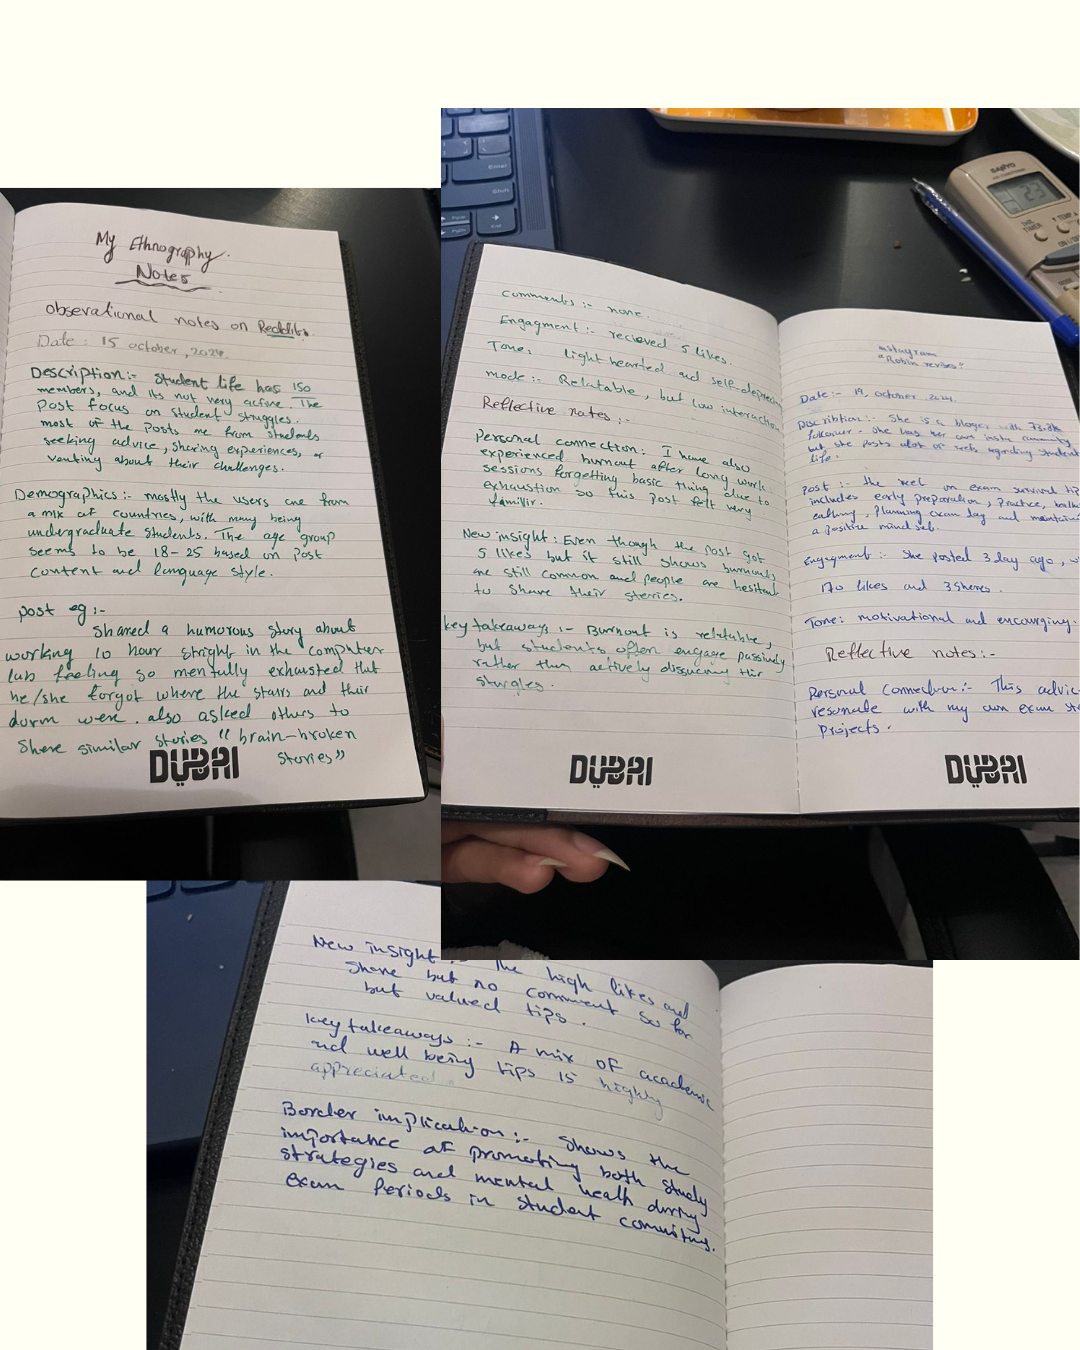 My Ethnography
Notes
obsevational notes on Reddit.
Date : 15 october, 2024.
Description:- Student life has 150
members, and its not very active. The
Post focus on student struggles.
most of the posts are from students
seeking advice, sharing experiences, or
venting about their challenges.
Demographics:- mostly the users are from
a mix of countries, with many being
undergraduate students. The age group
seems to be 18-25 based on post
content and language style.
post eg :-
Shared a humorous story about
working 10 hour stright in the computer
lab feeling so mentally exhausted that
he/she forgot where the stairs and their
dorm were. also asked others to
share similar stories "brain-broken
stories"
DUBAI
comments :- none.
Engagment :- recieved 5 likes.
Tone: lighthearted and self-deprec
mode:- Relatable, but low interaction
Reflective notes :-
Personal connection: I have also
experienced burnout after long work
sessions forgetting basic thing due to
exhaustion so this post felt very
familir.
New insight: Even though the post got
5 likes but it still shows burnouts
are still common and people are hesitent
to share their steries.
key takeaways :- Burnout is relatable,
but students often engage passively
rather than actively dissucing thir
strugles.
DUBAI
instagram
"Robin revises"
Date:- 19, october 2024
Discribtion:- She is a bloger with
follower. she has her own insta community
but she posts alot of reels regarding student
life.
Post :- the reel on exam survival tip
includes early preparation, practice, healt
eating, planning exam day and maintaini
a positive mind set.
Engagment :- She posted 3 day ago, w
170 likes and 3 shares.
Tone: motivational and encourging.
Reflective notes:-
Personal Connection:- This advic
resonate with my own exam str
projects.
DUBAI
New insight :- The high likes and
share but no comment so far
but valued tips.
key takeaways :- A mix of academic
and well being tips is highly
appreciated.
Border implication:- Shows the
importance of promoting both study
strategies and mental health during
exam periods in student